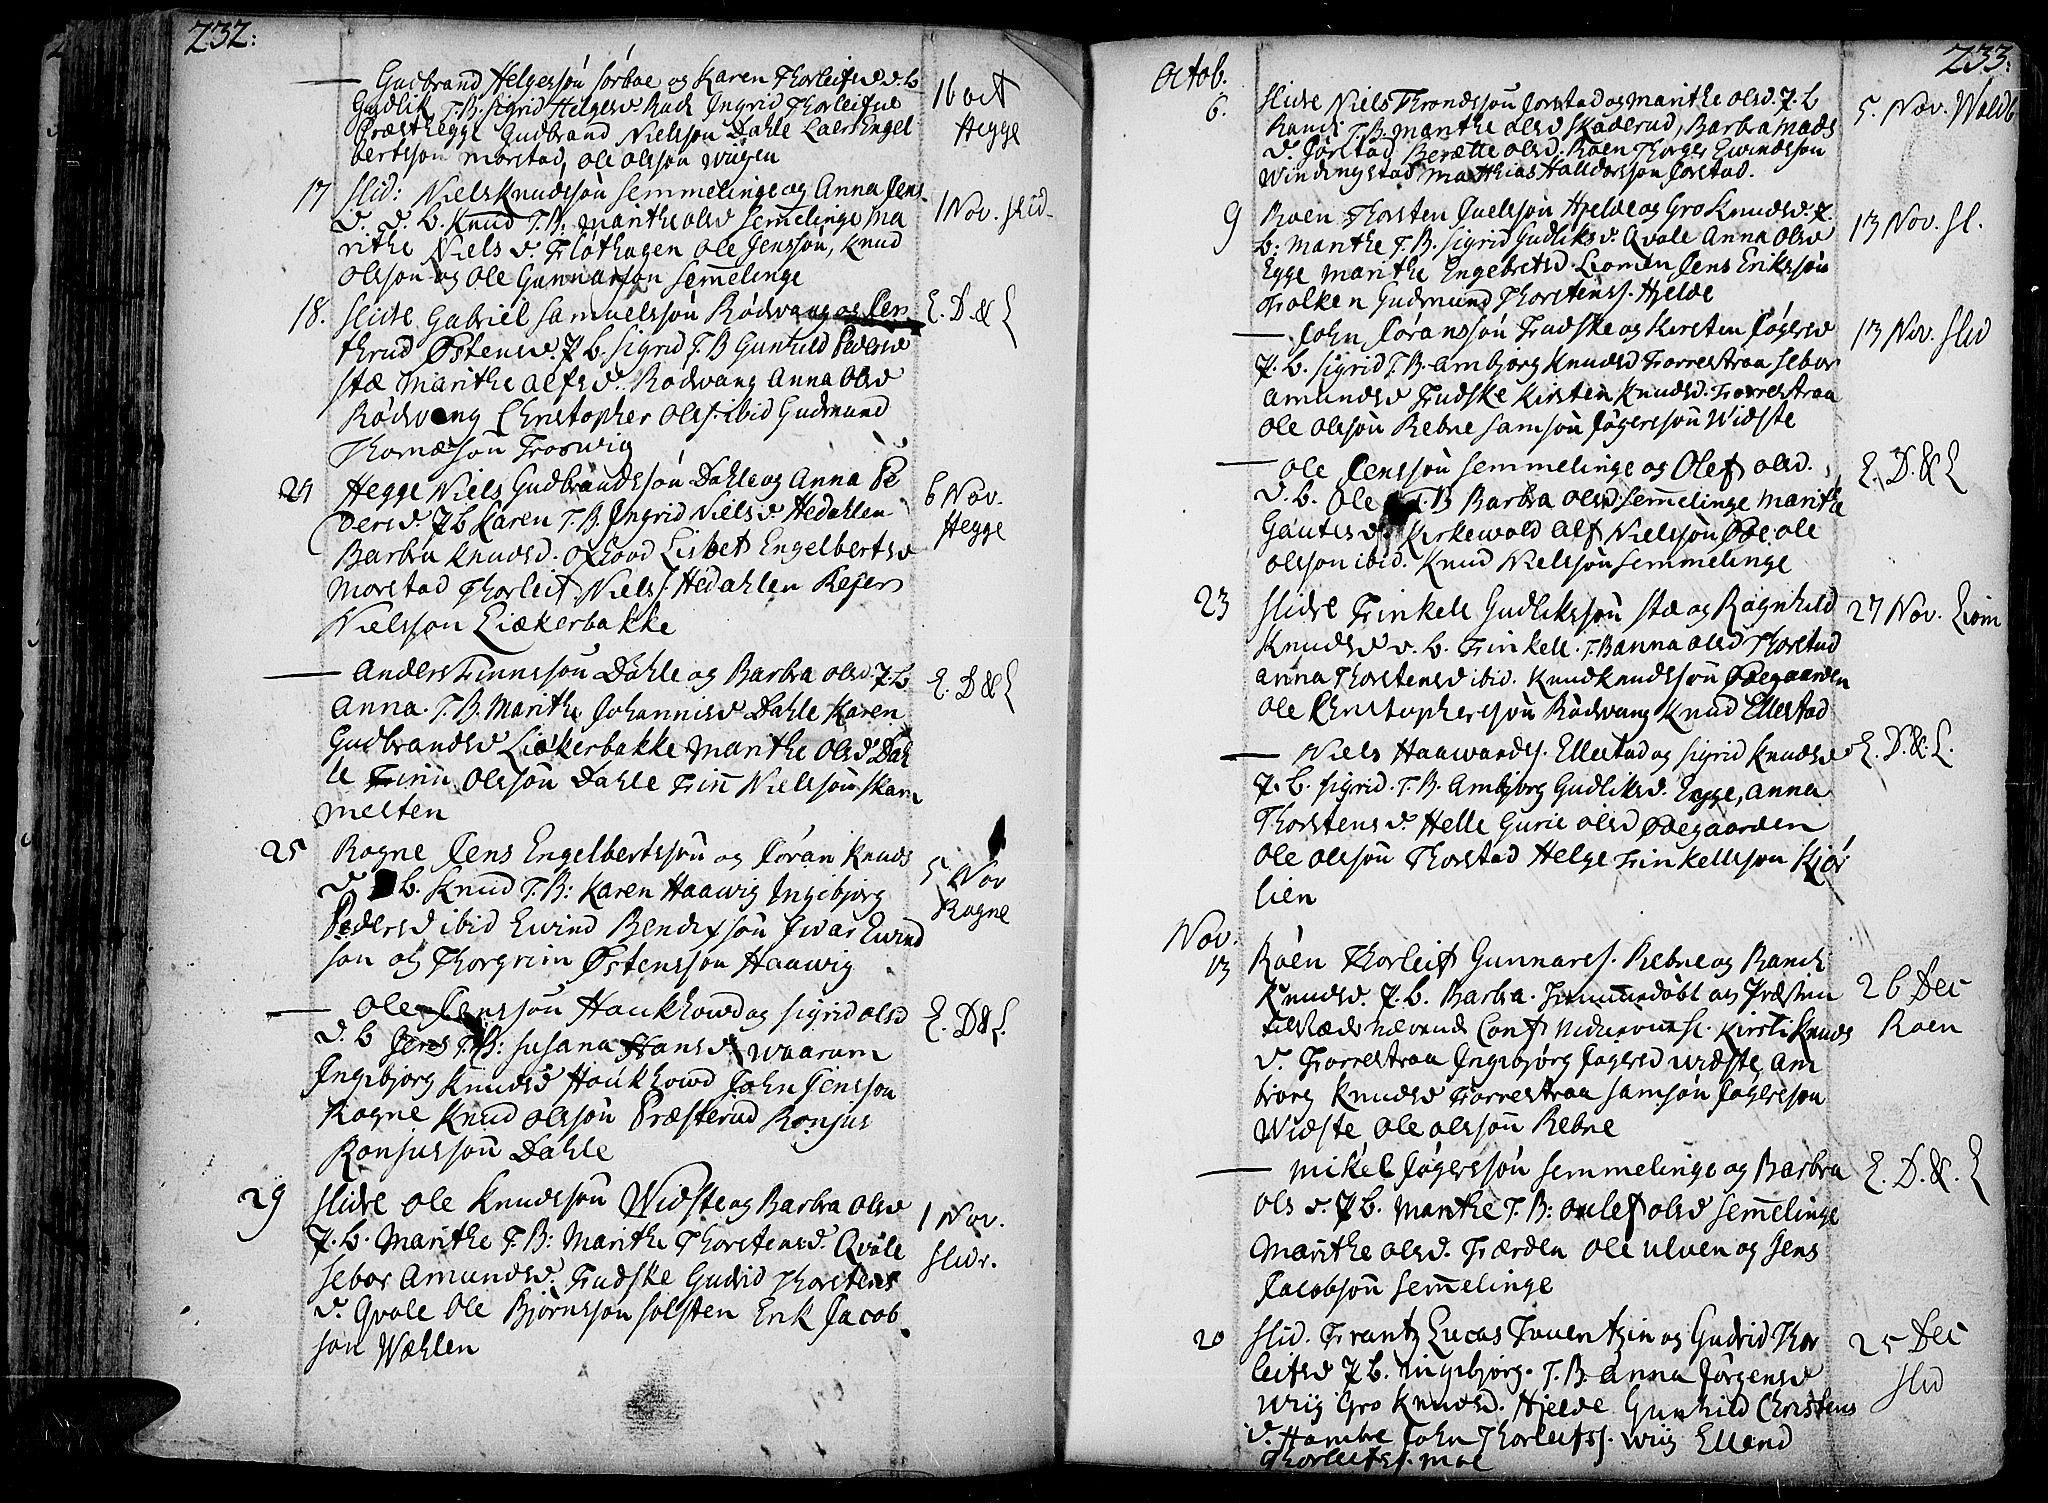 232:
— Gudbrand Helgersøn sørboe og Karen Thorleifsd v. b
Gudlik T. B. Sigrid Helgesd Rudi Ingrid Thorleifsd
Præsthegge Gudbrand Nielssøn Dahle Laers Engel
bertsson morstad, ole olsson wiigen
16 oct
Hegge
17 slid: Niels Knudssøn semmelinge og Anna Jens
d. v. b. Knud T. B: marithe olsd semelinge ma
rithe Niels d. Fløthagen ole Jenssøn, Knud
olsson og ole Gunnarsøn semelinge
1 Nov. slid
18. slidre Gabriel samuelssøn Rødvang og Jen
thrud Østensd. P. b. sigrid T. B Gunhild Pedersd
stæ marithe alfsd. Rødvang Anna olsd
Rødvang Christopher ols. ibid Gudmund
Thomæsøn Froswig
E. D. & L
21 Hegge Niels Gudbrandssøn Dahle og Anna Pe
dersd. P b Karen T. B. Ingrid Nielsd Hedahlen
Barbra Knudsd. Øxhovd Lisbet Engelbertsd
morstad Thorleif Niels s. Hedahlen Rejer
Nielsson Liækerbakke
6 Nov.
Hegge
— Anders Finnssøn Dahle og Barbra olsd. P. b
Anna. T. B. Marithe Johannisd Dahle Karen
Gudbrandsd Liækerbakke marithe olsd Dah
le Finn olssøn Dahle Finn Nielssøn skam
mesten
E. D & L
25 Rogne Jens Engelbertssøn og Jøran Knuds
d b. Knud T. B: Karen Haawig Ingibjorg
Pedersd ibid Ewind Bendixsøn Iwar Ewind
søn og Thorgrim Østenssøn Haawig
5 Nov
Rogne
— Ole Jenssøn Haukhowd og sigrid olsd
v. b Jens T. B: susana Hansd. waarum
Ingibjorg Knudsd Haukhowd John Jenssøn
Rogne Knud olssøn Præsterud Ronjus
Ronjussøn Dahle
E. D & L.
29 slidre ole Knudssøn Widste og Barbra olsd
P. b. Marithe T. B: Marithe Thorstensd. Qvale
sebor Amundsd. Fudske Gudrid Thorstens
d. Qvale ole Bjørnssøn solsten Erik Jacob
søn Wæhlen
1 Nov.
slidr.
233.
octob.
6. slidre Niels Throndssøn Jorstad og marithe olsd. P. b
Randi T. B. marithe olsd skaderud, Barbra mads
d. Jørstad Berætte olsd. Roen Thorger Ewindssøn
windingstad mathias Halldorssøn Jorstad.
5. Nov. Waldb
9 Roen Thorsten Juelssøn Hjelde og Gro Knudsd. P.
b. marithe T. B. sigrid Gudliksd. Qvale Anna olsd
Egge marithe Engebretsd Liomen Jens Erikssøn
Trolken Gudmund Thorstenss. Hjelde
13 Nov. sl.
— John Joranssøn Fudske og Kirsten Jøgersd
P. b. sigrid T. B. Ambjorg Knudsd Forrestraa sebor
Amundsd Fudske Kirsten Knudsd. Forrestraa
ole olssøn Rebne samsøn Jøgerssøn Widste
13 Nov. slid
— ole Jenssøn semmelinge og Olef olsd.
v. b. ole T. B Barbra olsd semelinge marithe
Gautesd. Kirkewold Alf Nielssøn Øde ole
olsson ibid. Knud Nielssøn semmelinge
E. D. & L
23 slidre Finkell Gudlikssøn stæ og Ragnhild
Knudsd v. b. Finkell. T. B anna olsd Thorstad
anna Thorstensd ibid. Knud Knudssøn Ødegaarden
ole Christopherssøn Rødvang Knud Ellestad
27 Nov. Liom
— Niels Haawards. Ellestad og sigrid Knudsd
P. b. sigrid. T. B. Ambjorg Gudliksd. Egge, Anna
Thorstensd. Helle Gurie olsd Ødegaarden
ole olssøn Thorstad Helge Finkellsson Kjør
lien
E. D. & L.
Nov.
13 Roen Thorleif Gunnars s. Rebne og Randi
Knudsd. P. b. Barbra. og Præsten
Kirsti Knuds
d. Forrestraa Ingibjørg Jøgersd widste, am
bjorg Knudsd Forrestraa samsøn Jøgerssøn
Widste ole olssøn Rebne
26 Dec
Roen
— mikel Jøgerssøn semmelinge og Barbra
ols d. P b. marithe T. B: oulef olsd semelinge
Marithe olsd. Færden ole ulven og Jens
Jacobssøn semelinge
E. D. &. L
20 slid. Frantz Lucas Fauentzin og Gudrid Thor
leifsd P. b. Ingibjorg. T. B. Anna Jørgensd
wiig Gro Knudsd. Hjelde Gunhild Christens
d. Hambre John Thorleifss. wiig Ellend
Thorleifs s. moe
25 Dec
slid